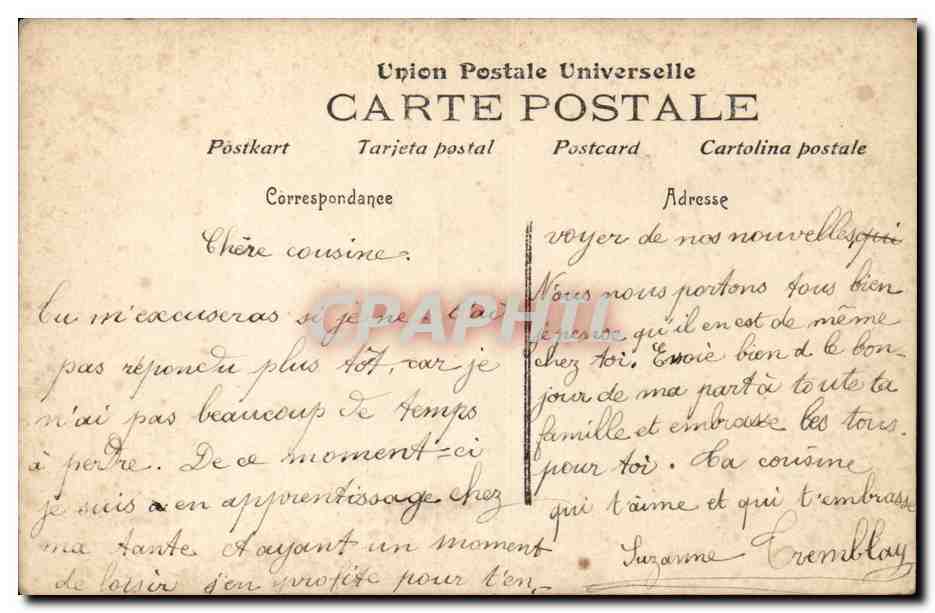 Union Postale Universelle
CARTE POSTALE
Postkart Tarjeta postal Postcard Cartolina postale
Correspondance
Adresse
Chère cousine.
Tu m'excuseras si je ne t'ai
pas répondu plus tôt, car je
n'ai pas beaucoup de temps
à perdre. De ce moment=ci
je suis en apprentissage chez
ma tante et ayant un moment
de loisir j'en profite pour t'en,
voyer de nos nouvelles, qui
Nous nous portons tous bien
je pense qu'il en est de même
chez toi. Envoie bien d le bon-
jour de ma part à toute ta
famille et embrasse les tous
pour toi. Ta cousine
qui t'aime et qui t'embrasse
Suzanne Tremblay
CPAPHIL